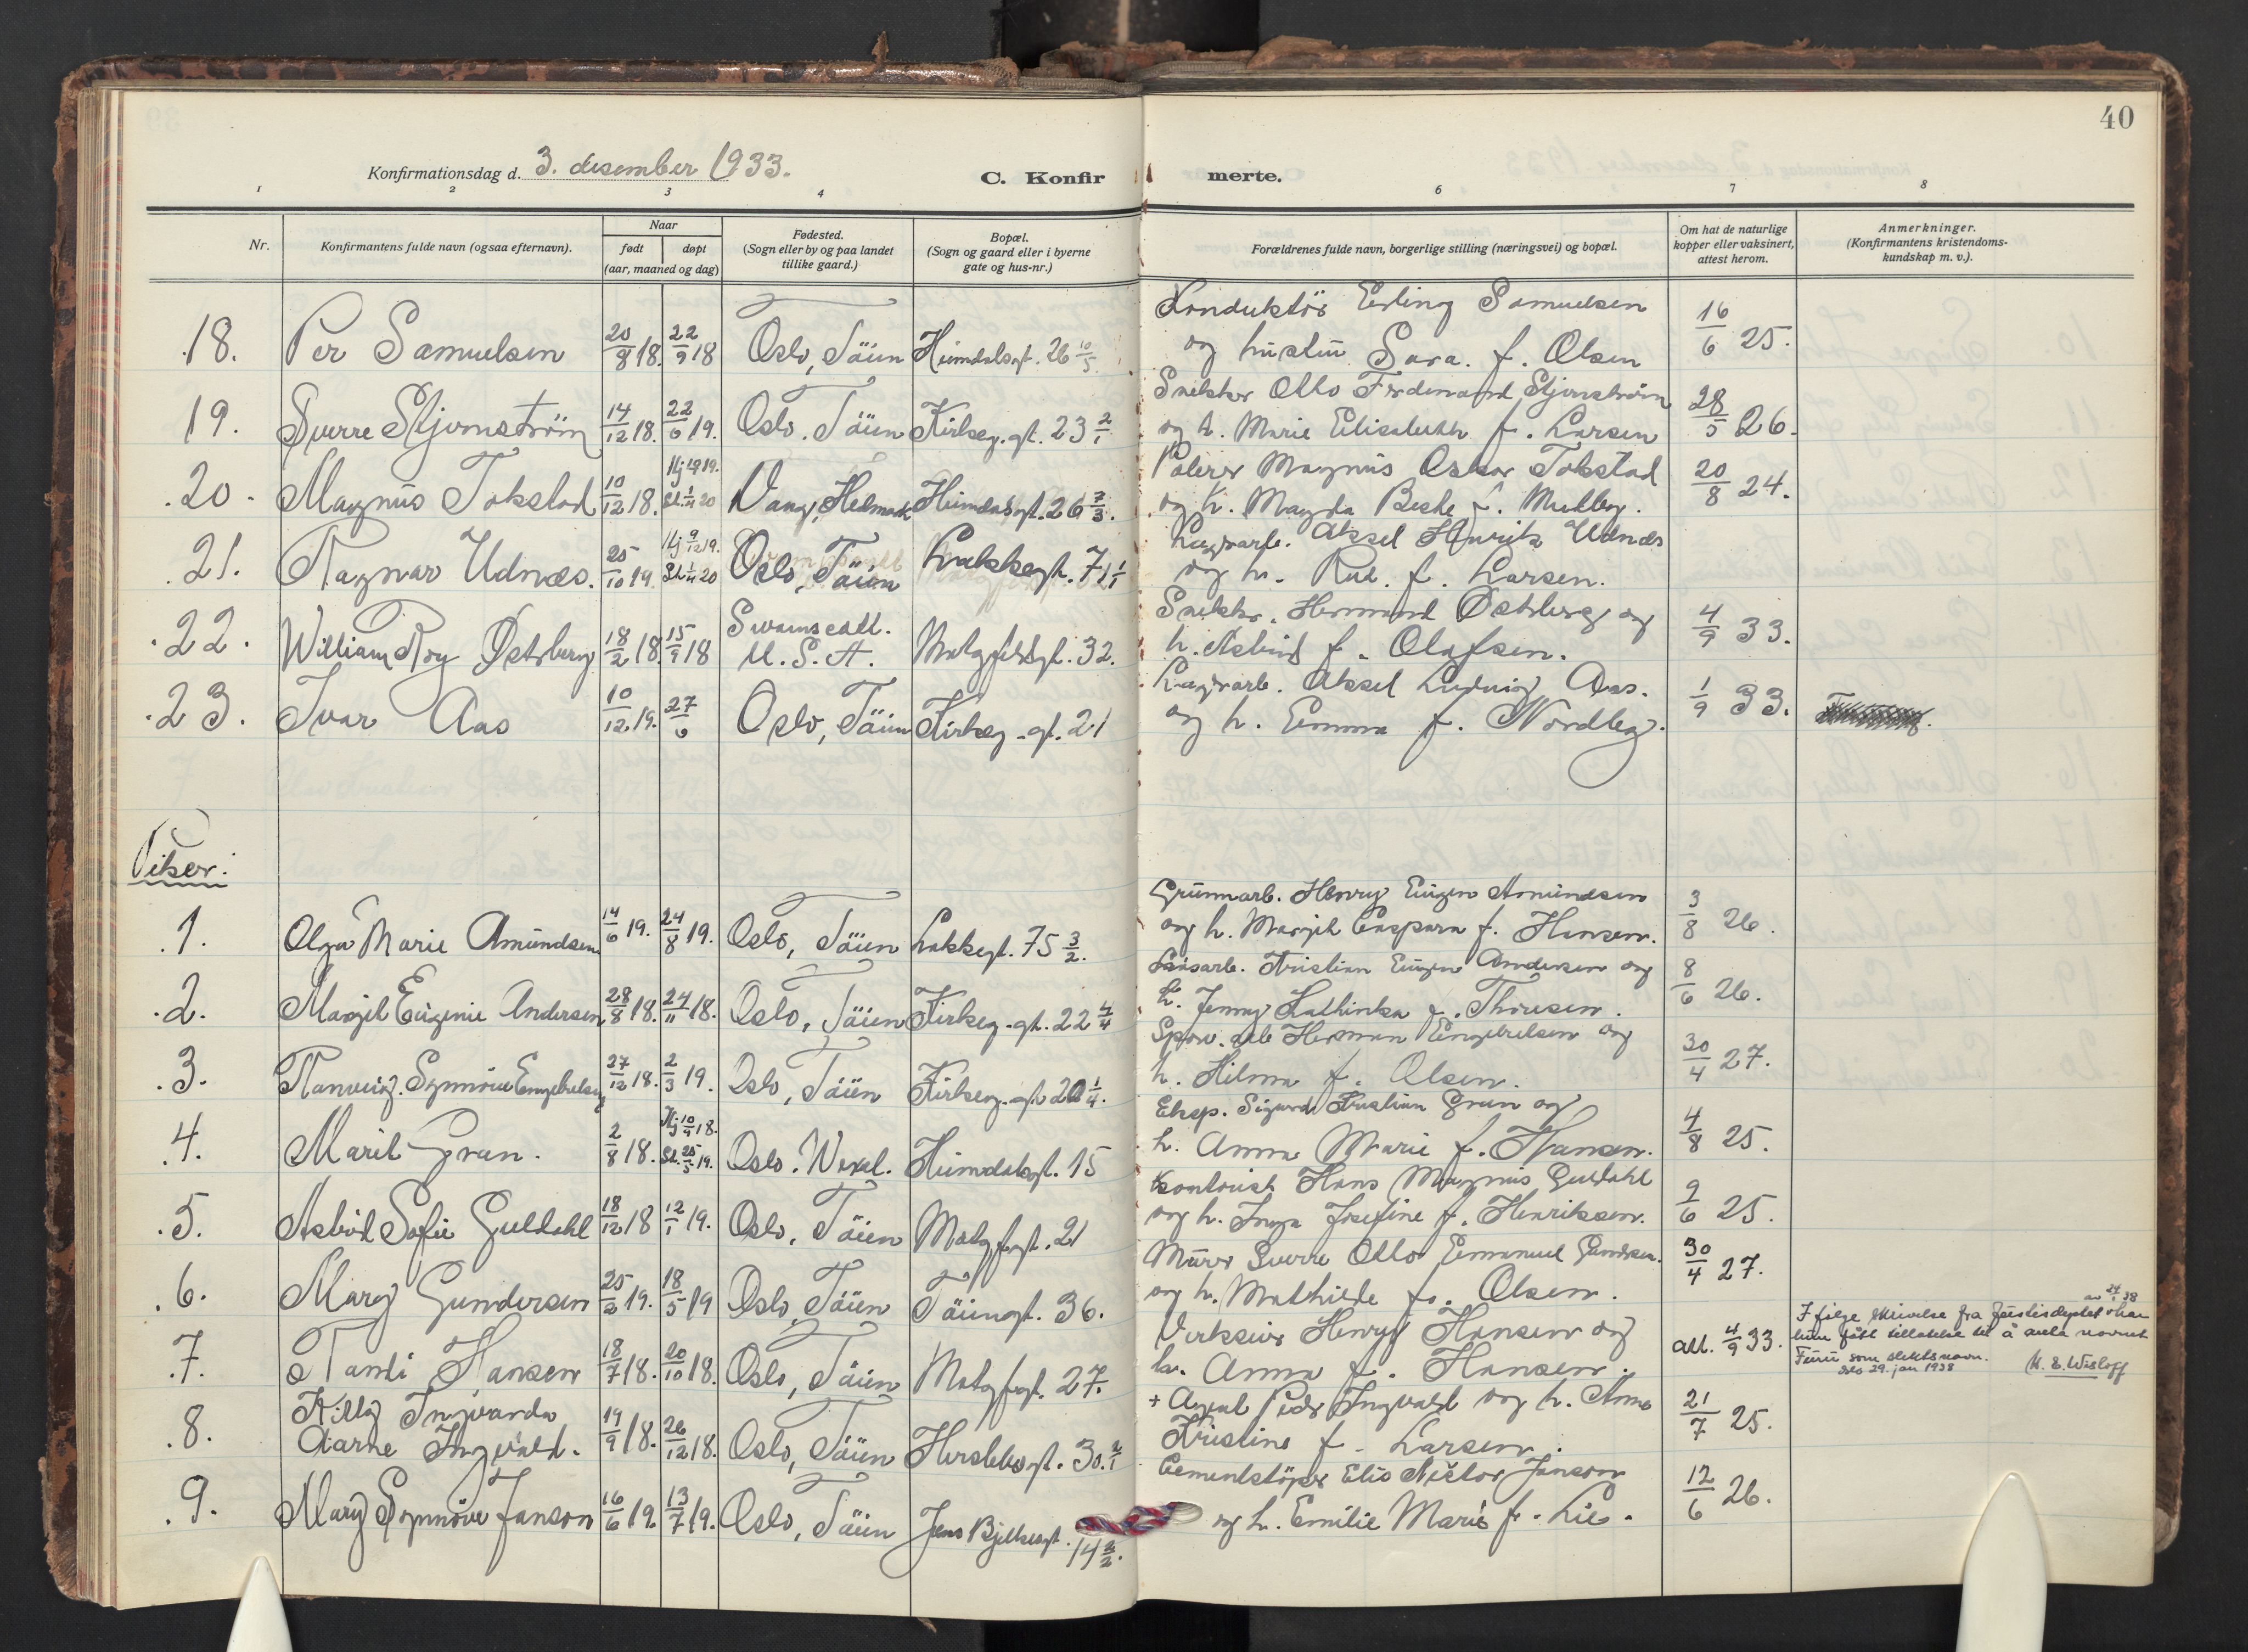 40
Konfirmationsdag d. 3. desember 1933.
C. Konfir merte.
1 2 3 4 6 7 8
Nr.
Konfirmantens fulde navn (ogsaa efternavn).
Naar
født døpt
(aar, maaned og dag)
Fødested.
(Sogn eller by og paa landet
tillike gaard.)
Bopæl.
(Sogn og gaard eller i byerne
gate og hus-nr.)
Forældrenes fulde navn, borgerlige stilling (næringsvei) og bopæl.
Om hat de naturlige
kopper eller vaksinert,
attest herom.
Anmerkninger.
(Konfirmantens kristendoms-
kundskap m. v.).
Konduktör Erling Samuelsen
18. Per Samuelsen 20/8 18. 22/9 18 Oslo, Töien Heimdalsgt. 26 10/5 og hustru Sara f. Olsen 16/6 25.
Snekker Otto Ferdinand Stjernström
19. Sverre Stjernström 14/12 18. 22/6 19. Oslo. Töien Kirkeg. gt. 23 2/1 og h. Marie Elisabeth f. Larsen 28/5 26.
Polerer Magnus Oskar Tokstad
20. Magnus Tokstad 10/12 18. Vang, Hedmark Heimdalsgt. 26 7/3. og h. Magda f. 20/8 24.
Lagerarb. Aksel Henrik Udnæs
21. Ragnar Udnæs. 25/10 19. Oslo, Töien Lakkegt. 71 1/1 og h. f. Larsen.
Snekker. Hermand Østberg og
22. William Roy Østberg 18/2 18 15/9 18 Swamscott. U. S. A. Motzfeldtsgt. 32. h. Astrid f. Olafsen. 4/9 33.
Lagerarb. Aksel Ludvig Aas.
23. Ivar Aas 10/12 19. 27/6 Oslo, Töien Kirkeg. gt. 21 og h. Emma f. Nordby. 1/9 33.
Piker:
Grunnarb. Henry Eugen Amundsen
1. Olga Marie Amundsen 14/6 19. 24/8 19. Oslo, Töien Lakkegt. 75 3/2. og h. Margit Caspara f. Hansen. 3/8 26.
Kristian Eugen Andersen og
2. Margit Eugenie Andersen 28/8 18. 24/11 18. Oslo, Töien Kirkeg. gt. 22 4/4 h. Jenny Kathinka f. Thoresen. 8/6 26.
Herman Engebretsen og
3. Ranveig Synnöve Engebretsen 27/12 18. 2/3 19. Oslo, Töien Kirkeg. gt 20 1/4. h. Hilma f. Olsen. 30/4 27.
Eksp. Sigurd Kristian Gran og
4. Marit Gran. 2/8 18. Hj 10/9 18. St. 25/5 19. Oslo. Wexel. Heimdalsgt. 15 h. Anna Marie f. Hansen. 4/8 25.
Kontorist Hans Magnus Guldahl
5. Astrid Sofie Guldahl 18/12 18 12/1 19. Oslo, Töien Motzfgt. 21 og h. Inga Josefine f. Henriksen. 9/6 25.
Murer Sverre Otto Emanuel Gundersen.
6. Mary Gundersen 25/3 19. 18/5 19 Oslo, Töien Töiengt. 36. og h. Mathilde f. Olsen. 30/4 27.
Verkseier Henry Hansen og
7. Randi Hansen 18/7 18. 20/10 18. Oslo, Töien Motzfgt. 27. h. Anna f. Hansen. att. 4/9 33.
av 27/1 38
I følge skrivelse fra Justisdeptet har
hun fått tillatelse til å anta navnet
Furu som slektsnavn.
Oslo 29. jan 1938 K. E. Wisløff
Killy Ingvarda
+ Agent Peder Ingvald og h. Anna
8. Aarne Ingvald. 19/9 18. 26/12 18. Oslo, Töien Herslebsgt. 30. 2/1 Kristine f. Larsen. 21/7 25.
Cementstøper Elis Nestor Janson
9. Mary Synnöve Janson 16/6 19. 13/7 19. Oslo, Töien Jens Bjelkesgt. 14 2/2. og h. Emilie Marie f. Lie. 12/6 26.